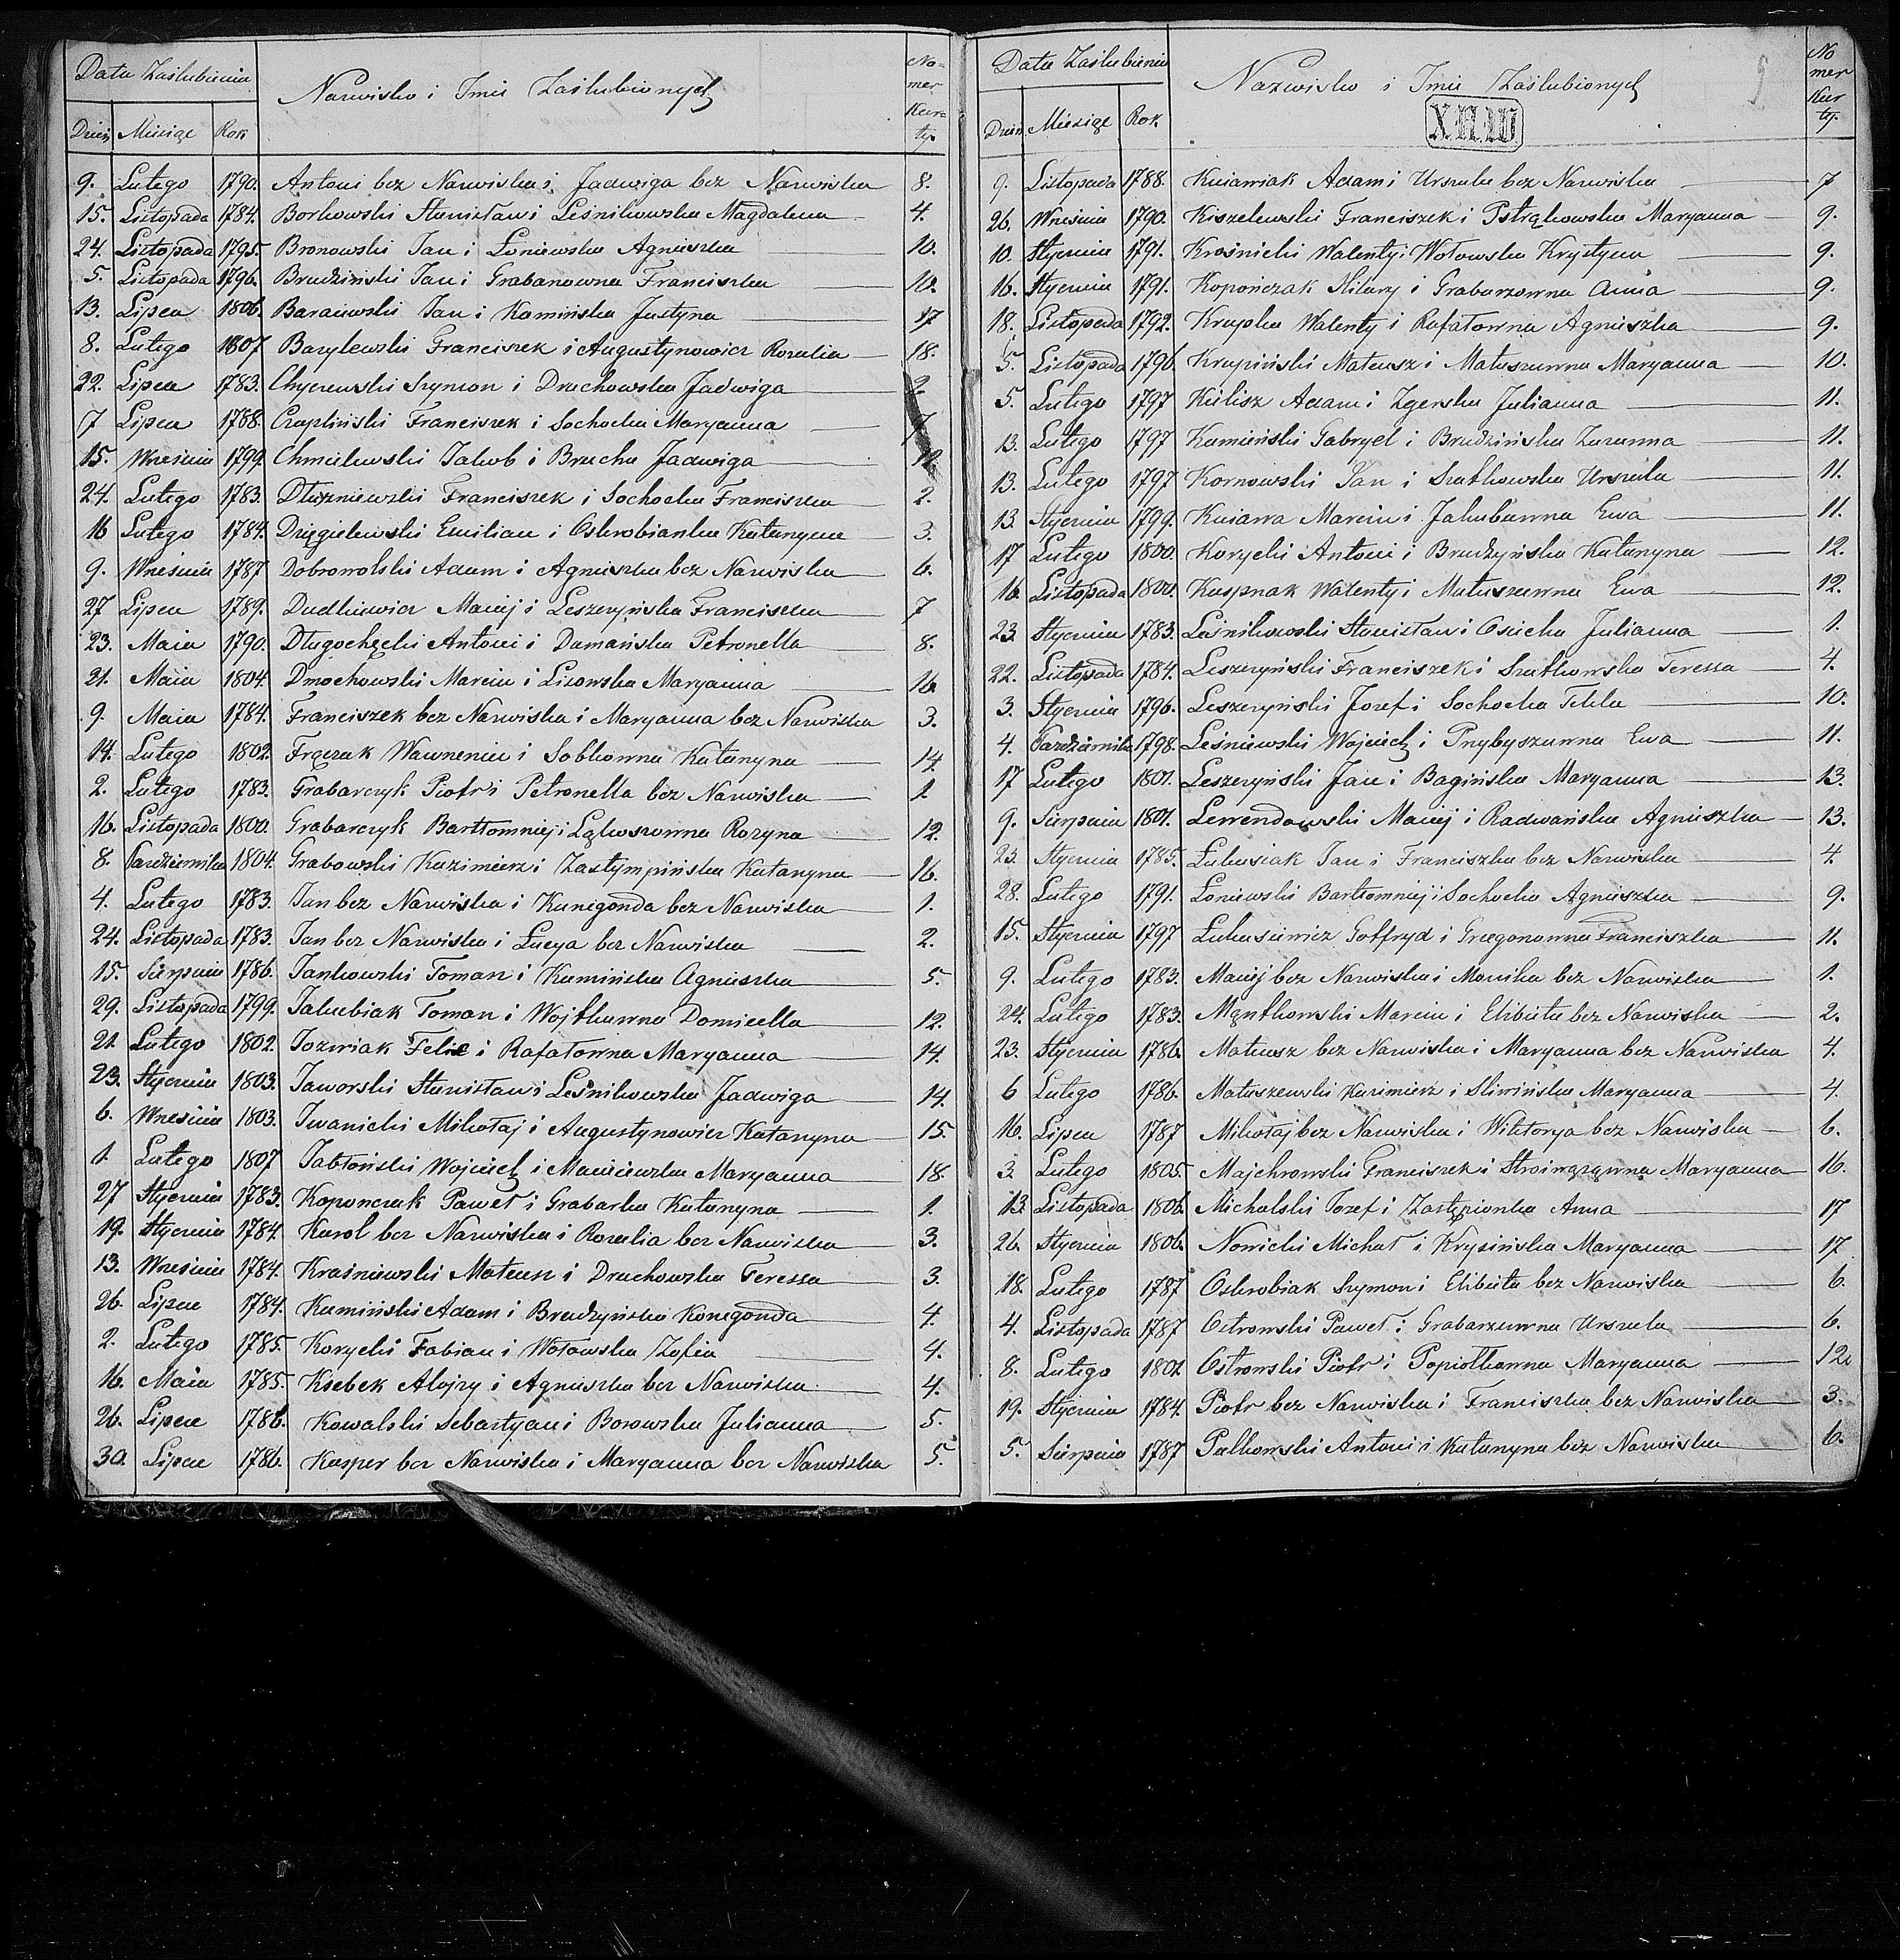 Data Zaślubienia
Nazwisko i Imie Zaślubionych
No-
mer
Kar=
ty.
Dzień Miesiąc Rok
9. Lutego 1790. Antoni bez Nazwiska i Jadwiga bez Nazwiska 8.
15. Listopada 1784. Borkowski Stanisław i Leśnikowska Magdalena 4.
24. Listopada 1795. Bronowski Jan i Łoniewska Agnieszka 10.
5. Listopada 1796. Brudziński Jan i Grabanowna Franciszka 10.
13. Lipca 1806. Baranowski Jan i Kamińska Justyna 17
8. Lutego 1807 Barylewski Franciszek i Augustynowicz Rozalia 18.
22. Lipca 1783. Chyczewski Szymon i Druchowska Jadwiga 2.
7 Lipca 1788. Czapliński Franciszek i Sochocka Maryanna 7
15. Wrzesnia 1799. Chmielewski Jakob i Brucha Jadwiga
24. Lutego 1783. Dłużniewski Franciszek i Sochocka Franciszka 2.
16 Lutego 1784. Dzięgielewski Emilian i Oskrobianka Katarzyna 3.
9. Wrzesnia 1787 Dobrowolski Adam i Agnieszka bez Nazwiska 6.
27 Lipca 1789. Dudkiewicz Maciej i Leszczyńska Franciszka 7
23. Maia 1790. Długochęcki Antoni i Damańska Petronella 8.
21. Maia 1804. Dmochowski Marcin i Lisowska Maryanna 16.
9. Maia 1784. Franciszek bez Nazwiska i Maryanna bez Nazwiska 3.
14. Lutego 1802. Frączak Wawrzeniec i Sobkowna Katarzyna 14.
2. Lutego 1783. Grabarczyk Piotr i Petronella bez Nazwiska 1.
16. Listopada 1800. Grabarczyk Bartłomniej i Łąkoszowna Rozyna 12.
8. Pazdziernika 1804. Grabowski Kazimierz i Zastympińska Katarzyna 16.
4. Lutego 1783. Jan bez Nazwiska i Kunegonda bez Nazwiska 1.
24. Listopada 1783. Jan bez Nazwiska i Łucya bez Nazwiska 2.
15. Sierpnia 1786. Jankowski Tomasz i Kamińska Agnieszka 5.
29. Listopada 1799. Jakubiak Tomasz i Wojtkowna Domicella 12.
21. Lutego 1802. Jozwiak Felix i Rafałowna Maryanna 14.
23. Stycznia 1803. Jaworski Stanisław i Leśnikowska Jadwiga 14.
6. Wrzesnia 1803. Iwanicki Mikołaj i Augustynowicz Katarzyna 15.
1. Lutego 1807 Jabłoński Wojciech i Maciiewska Maryanna 18.
27 Stycznia 1783. Koponczak Paweł i Grabarka Katarzyna 1.
19. Stycznia 1784. Karol bez Nazwiska i Rozalia bez Nazwiska 3.
13. Wrzesnia 1784. Kraśniewski Mateusz i Druchowska Teressa 3.
26. Lipca 1784. Kamiński Adam i Brudzyńska Konegonda 4.
2. Lutego 1785. Korycki Fabian i Wołowska Zofia 4.
16. Maia 1785. Ksebek Alojzy i Agnieszka bez Nazwiska 4.
26. Lipca 1786. Kowalski Sebastyan i Borowska Julianna 5.
30. Lipca 1786. Kasper bez Nazwiska i Maryanna bez Nazwiska 5.
Data Zaślubienia
Nazwisko i Imie Zaślubionych
No
mer
Kar
ty.
Dzień Miesiąc Rok
9. Listopada 1788. Kuiawiak Adam i Urszula bez Nazwiska 7
26. Wrzesnia 1790. Kiszelewski Franciszek i Pstrąkowska Maryanna 9.
10. Stycznia 1791. Krośnicki Walenty i Wołowska Krystyna 9.
16. Stycznia 1791. Kopończak Hilary i Grabarzowna Anna 9.
18. Listopada 1792. Krupka Walenty i Rafałowna Agnieszka 9.
5. Listopada 1796. Krupiński Mateusz i Matuszewna Maryanna 10.
5. Lutego 1797 Kulisz Adam i Zgerska Julianna 11.
13. Lutego 1797 Kamieński Gabryel i Brudzińska Zuzanna 11.
13. Lutego 1797 Kornowski Jan i Szatkowska Urszula 11.
13. Stycznia 1799. Kuiawa Marcin i Jakubowna Ewa 11.
17 Lutego 1800. Korycki Antoni i Brudzyńska Katarzyna 12.
16. Listopada 1800. Kasprzak Walenty i Matuszewna Ewa 12.
23. Stycznia 1783. Leśnikowski Stanisław i Osiecka Julianna 1.
22. Listopada 1784. Leszczyński Franciszek i Szatkowska Teressa 4.
3. Stycznia 1796. Leszczyński Jozef i Sochocka Tekla 10.
4. Pazdziernika 1798. Leśniewski Wojciech i Przybyszewna Ewa 11.
17 Lutego 1801. Leszczyński Jan i Bagińska Maryanna 13.
9. Sierpnia 1801. Lewendowski Maciej i Radwańska Agnieszka 13.
23. Stycznia 1785. Łukasiak Jan i Franciszka bez Nazwiska 4.
28. Lutego 1791. Łoniewski Bartłomniej i Sochocka Agnieszka 9.
15. Stycznia 1797 Łukasiewicz Gotfryd i Grzegorzowna Franciszka 11.
9. Lutego 1783. Maciej bez Nazwiska i Monika bez Nazwiska 1.
24. Lutego 1783. Marcin i Elżbieta bez Nazwiska 2.
23. Stycznia 1786. Mateusz bez Nazwiska i Maryanna bez Nazwiska 4.
6 Lutego 1786. Matuszewski Kazimierz i Sliwińska Maryanna 4.
16. Lipca 1787 Mikołaj bez Nazwiska i Wiktorya bez Nazwiska 6.
3. Lutego 1805. Majchrowski Franciszek i Maryanna 16.
13. Listopada 1806. Michalski Jozef i Zastępionka Anna 17
26. Stycznia 1806. Nowicki Michał i Krysińska Maryanna 17
18. Lutego 1787 Oskrobiak Szymon i Elżbieta bez Nazwiska 6.
4. Listopada 1787 Ostrowski Paweł i Grabarzewna Urszula 6.
8. Lutego 1801. Ostrowski Piotr i Popiołkowna Maryanna 12.
19. Stycznia 1784. Piotr bez Nazwiska i Franciszka bez Nazwiska 3.
5. Sierpnia 1787 Palkowski Antoni i Katarzyna bez Nazwiska 6.